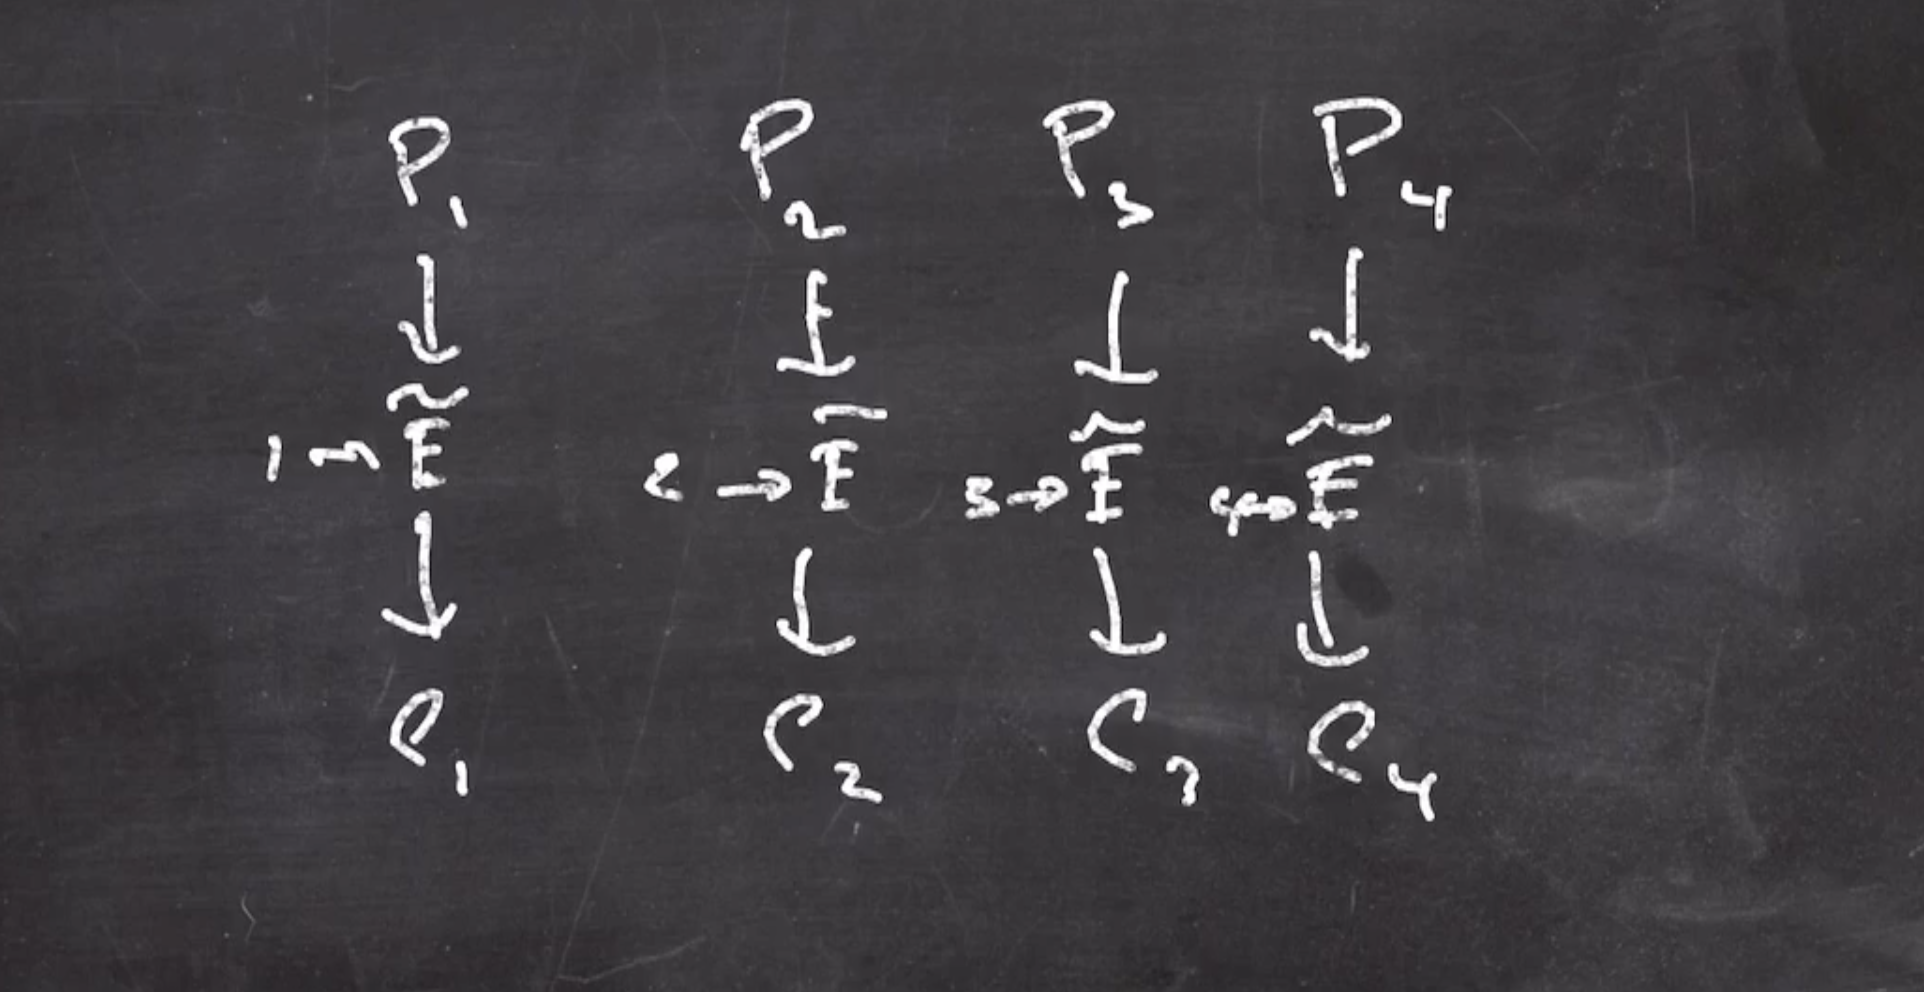 P₁ P₂ P₃ P₄
↓ ↓ ↓ ↓
1 → Ẽ 2 → Ẽ 3 → Ẽ 4 → Ẽ
↓ ↓ ↓ ↓
C₁ C₂ C₃ C₄